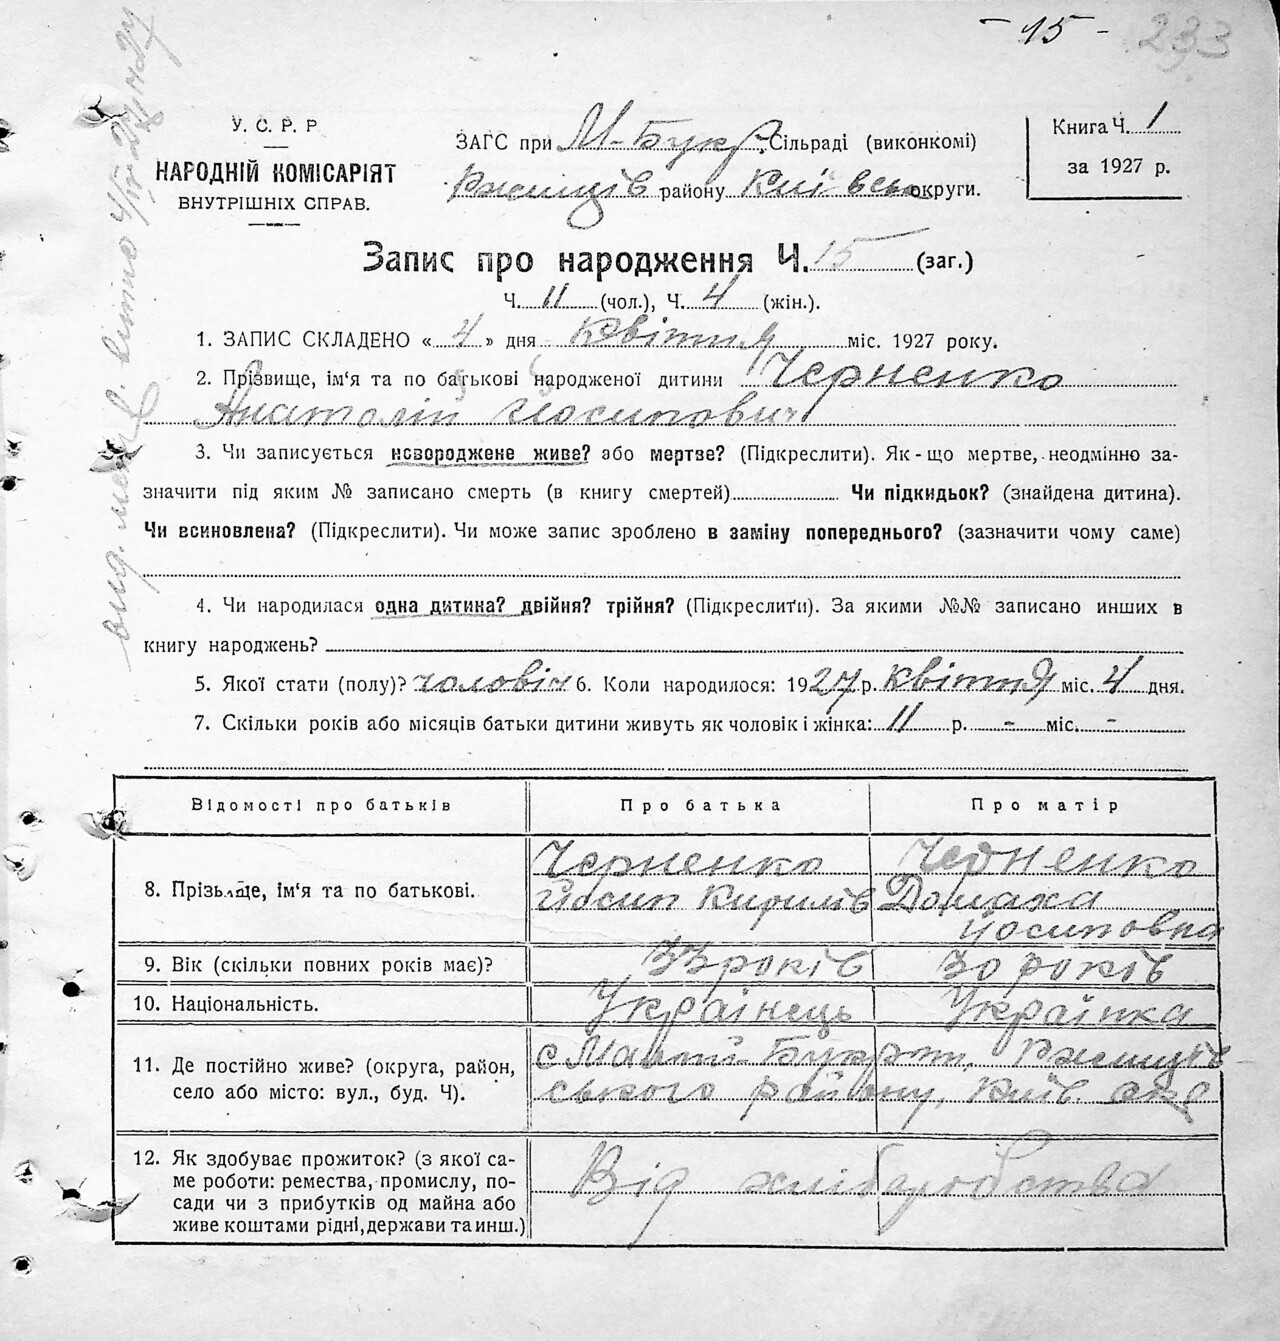 - 15 - 233
У. С. Р. Р
НАРОДНІЙ КОМІСАРІЯТ
ВНУТРІШНІХ СПРАВ.
ЗАГС при М-Букр. Сільраді (виконкомі)
Ржищів району Київськ округи.
Книга Ч. 1
за 1927 р.
Запис про народження Ч. 15 (заг.)
Ч. 11 (чол.), Ч. 4 (жін.).
1. ЗАПИС СКЛАДЕНО « 4 » дня Квітня міс. 1927 року.
2. Прізвище, ім'я та по батькові народженої дитини Черненко
Анатолій Йосипович
3. Чи записується новороджене живе? або мертве? (Підкреслити). Як-що мертве, неодмінно за-
значити під яким № записано смерть (в книгу смертей) Чи підкидьок? (знайдена дитина).
Чи всиновлена? (Підкреслити). Чи може запис зроблено в заміну попереднього? (зазначити чому саме)
4. Чи народилася одна дитина? двійня? трійня? (Підкреслити). За якими №№ записано инших в
книгу народжень?
5. Якої стати (полу)? чоловіч 6. Коли народилося: 1927 р. квітня міс. 4 дня.
7. Скільки років або місяців батьки дитини живуть як чоловік і жінка: 11 р. - міс. -
Відомості про батьків Про батька Про матір
8. Прізвище, ім'я та по батькові. Черненко Йосип Кирилів Черненко Домаха Йосиповна
9. Вік (скільки повних років має)? 33 років 30 років
10. Національність. Українець Українка
11. Де постійно живе? (округа, район,
село або місто: вул., буд. Ч).
с Малий-Букрин, Ржищів-
ського району, Київ. окр
12. Як здобуває прожиток? (з якої са-
ме роботи: ремества, промислу, по-
сади чи з прибутків од майна або
живе коштами рідні, держави та инш.)
Від хліборобства